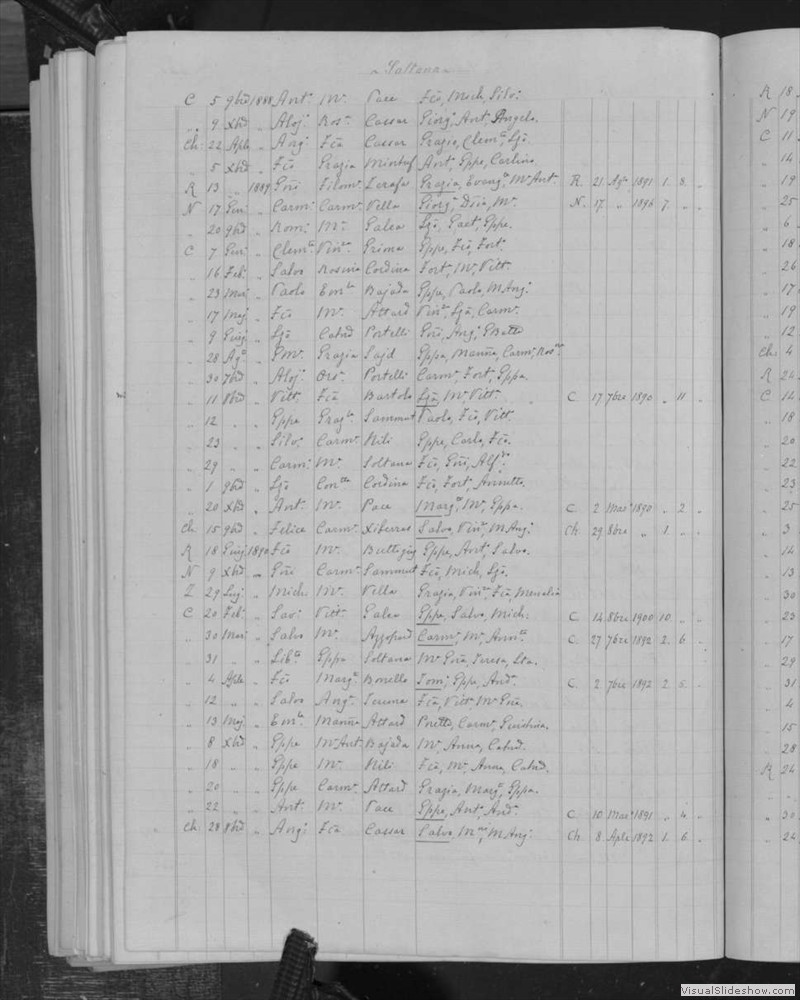 Soltana
C 5 9brd 1888 Ant. Mr. Pace Fcō, Mich, Silv.
" 9 Xbrd " Aloj. Ros. Cassar Giorg, Ant, Angela.
Ch. 22 Aple " Ang. Fcā Cassar Grazia, Clem, Ljō.
" 5 Xbrd " Fcō Grazia Mintuf Ant, Gppe, Carlina.
R 13 " 1889 Gnñi Filom. Zerafa Grazia, Evang. Mr. Ant. R. 21. Agō 1891 1. 8. "
N 17 Gen. " Carm. Carm. Vella Giorg, Mr. N. 17. " 1896 7. "
" 20 9brd " Rom. Mr. Galea Ljō, Gaet, Gppe.
C 7 Gen. " Clem. Vin. Grima Gppe, Fcō, Fort.
" 16 Feb. " Salvo Rosina Cordina Fort, Mr, Vitt.
" 23 Mar. " Paolo Em. Bajada Gppa, Paolo, M Ang.
" 17 Maj. " Fcō Mr. Attard Vin, Ljō, Carm.
" 9 Giug. " Ljō Catnd Portelli Gnñi, Ang, Gbatta
" 28 Agō " Em. Grazia Sajd Gppa, Mañña, Carm, Ros.
" 30 7brd " Aloj. Ors. Portelli Carm, Fort, Gppa.
" 11 8brd " Vitt. Fcā Bartolo Ljō, Mr, Vitt. C. 17 7bre 1890 " 11 "
" 12 " " Gppe Graz. Sammut Paolo, Fcō, Vitt.
" 23 " " Silv. Carm. Mili Gppe, Carlo, Fcō.
" 29 " " Carm. Mr. Soltana Fcō, Gnñi, Alf.
" 1 9brd " Ljō Con. Cordina Fcō, Fort, Annetta.
" 20 Xbrd " Ant. Mr. Pace Marg, Mr, Gppa. C. 2. Mar. 1890 " 2. "
Ch. 15 9brd " Felice Carm. Xiberras Salvo, Vin, M Ang. Ch. 29 8bre " 1. " "
R 18 Giug. 1890 Fcō Mr. Buttigieg Gppe, Ant, Salvo.
N 9 Xbrd " Gnñi Carm. Sammut Fcō, Mich, Ljō.
Z 29 Lug. " Mich. Mr. Vella Grazia, Vin, Fcā,
C 20 Feb. " Sav. Vitt. Galea Gppe, Salvo, Mich. C. 14. 8bre 1900 10. "
" 30 Mar. " Salvo Mr. Azzopard Carm, Mr, Ann. C. 27 7bre 1892 2. 6. "
" 31 " " Lib. Gppa Soltana Mr. Gnña, Teresa,
" 4 Aple " Fcō Marg. Bonello Tom, Gppe, And. C. 2. 7bre 1892 2. 5. "
" 12 " " Salvo Ang. Fcō, Vitt, Mr. Gnña.
" 13 Maj. " Em. Mañña Attard Carm,
" 8 Xbrd " Gppe Mr Ant. Bajada Mr, Anna, Catnd.
" 18 " " Gppe Mr. Mili Fcā, Mr, Anna, Catnd.
" 20 " " Gppe Carm. Attard Grazia, Marg, Gppa.
" 22 " " Ant. Mr. Pace Gppe, Ant, And. C. 10. Mar. 1891 " 4. "
Ch. 28 8brd " Ang. Fcā Cassar Salvo, M Ang. Ch. 8. Aple 1892 1. 6. "
R 18
N 19
C 11
" 14
" 19
" 25
" 6
" 18
" 26
" 17
" 19
" 12
Ch. 4
R 24
C 14
" 18
" 20
" 22
" 23
" 25
" 3
" 14
" 13
" 30
" 23
" 17
" 29
" 31
" 4
" 15
" 28
R 24
" 30
" 24
VisualSlideshow.com